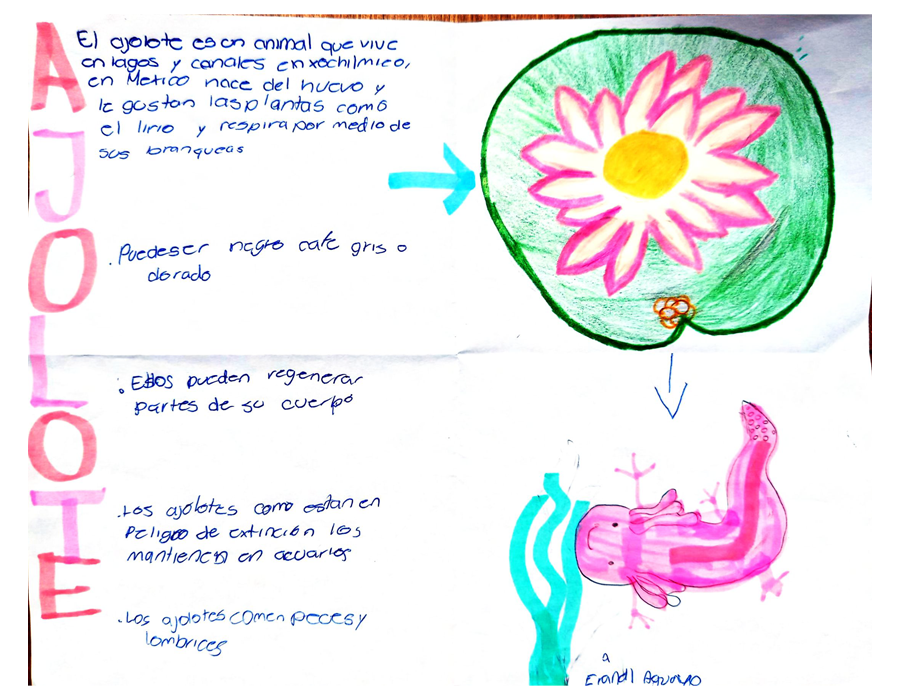 AJOLOTE
El ajolote es un animal que vive
en lagos y canales en xochilmico,
en Mexico nace del huevo y
le gustan las plantas como
el lirio y respira por medio de
sus branqueas
. Puede ser negro cafe gris o
dorado
. Ellos pueden regenerar
partes de su cuerpo
. Los ajolotes como estan en
Peligro de extinción los
mantienen en acuarios
. Los ajolotes comen peces y
lombrices
a